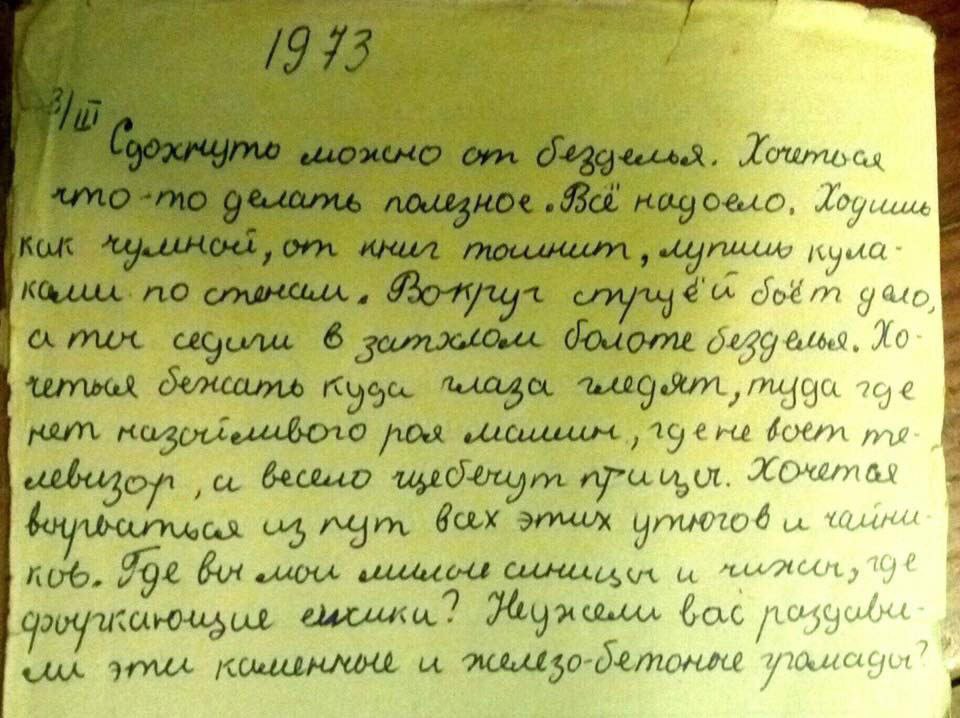 1973
3/III
Сдохнуть можно от безделья. Хочеться
что-то делать полезное. Всё надоело. Ходишь
как чумной, от книг тошнит, лупишь кула-
ками по стенам. Вокруг струёй бьёт дело,
а ты седиш в затхлом болоте безделья. Хо-
четься бежать куда глаза гледят, туда где
нет назойливого роя машин, где не воет те-
левизор, а весело щебечут птицы. Хочеться
вырваться из пут всех этих утюгов и чайни-
ков. Где вы мои милые синицы и чижы, где
фыркающие ежики? Неужели вас раздави-
ли эти каменные и железо-бетоные громады?